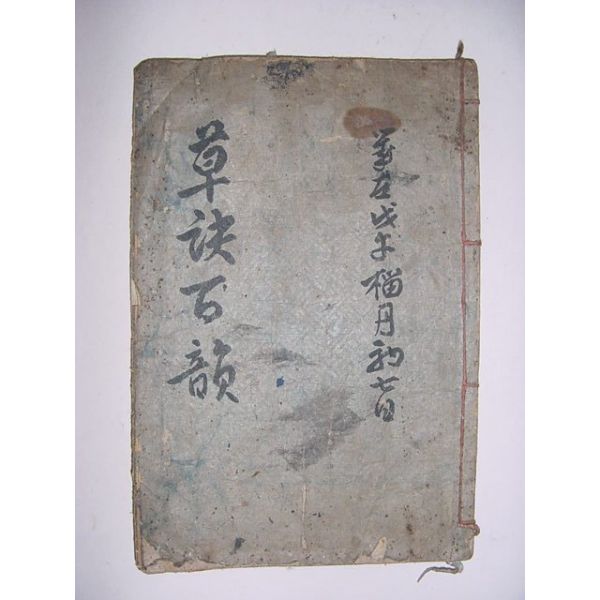 歲在戊午榴月初七日
草訣百韻